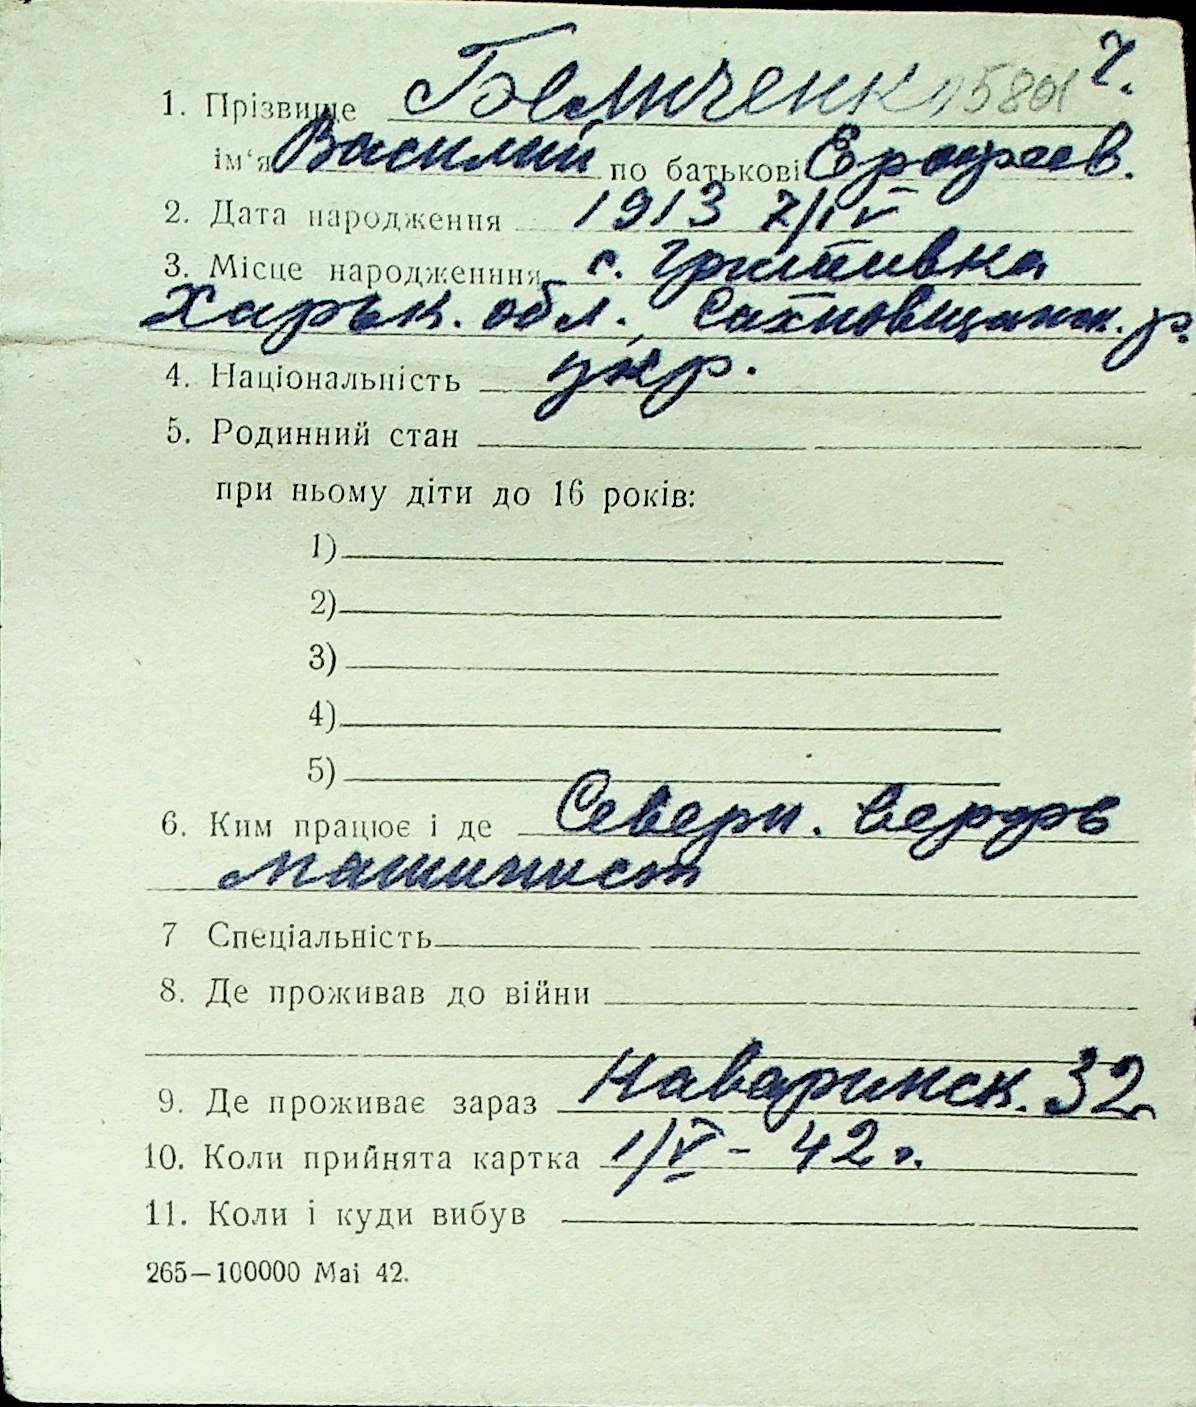 ч.
1. Прізвище Бемиченк 15801
ім'я Василий по батькові Ерофеев.
2. Дата народження 1913 7/IV
3. Місце народженння с. Гришивка
Харьк. обл., Сахновщанск. р.
4. Національність укр.
5. Родинний стан
при ньому діти до 16 років:
1)
2)
3)
4)
5)
6. Ким працює і де Северн. верфь
машинист
7 Спеціальність
8. Де проживав до війни
9. Де проживає зараз Наваринск. 32
10. Коли прийнята картка 1/V - 42 г.
11. Коли і куди вибув
265—100000 Mai 42.